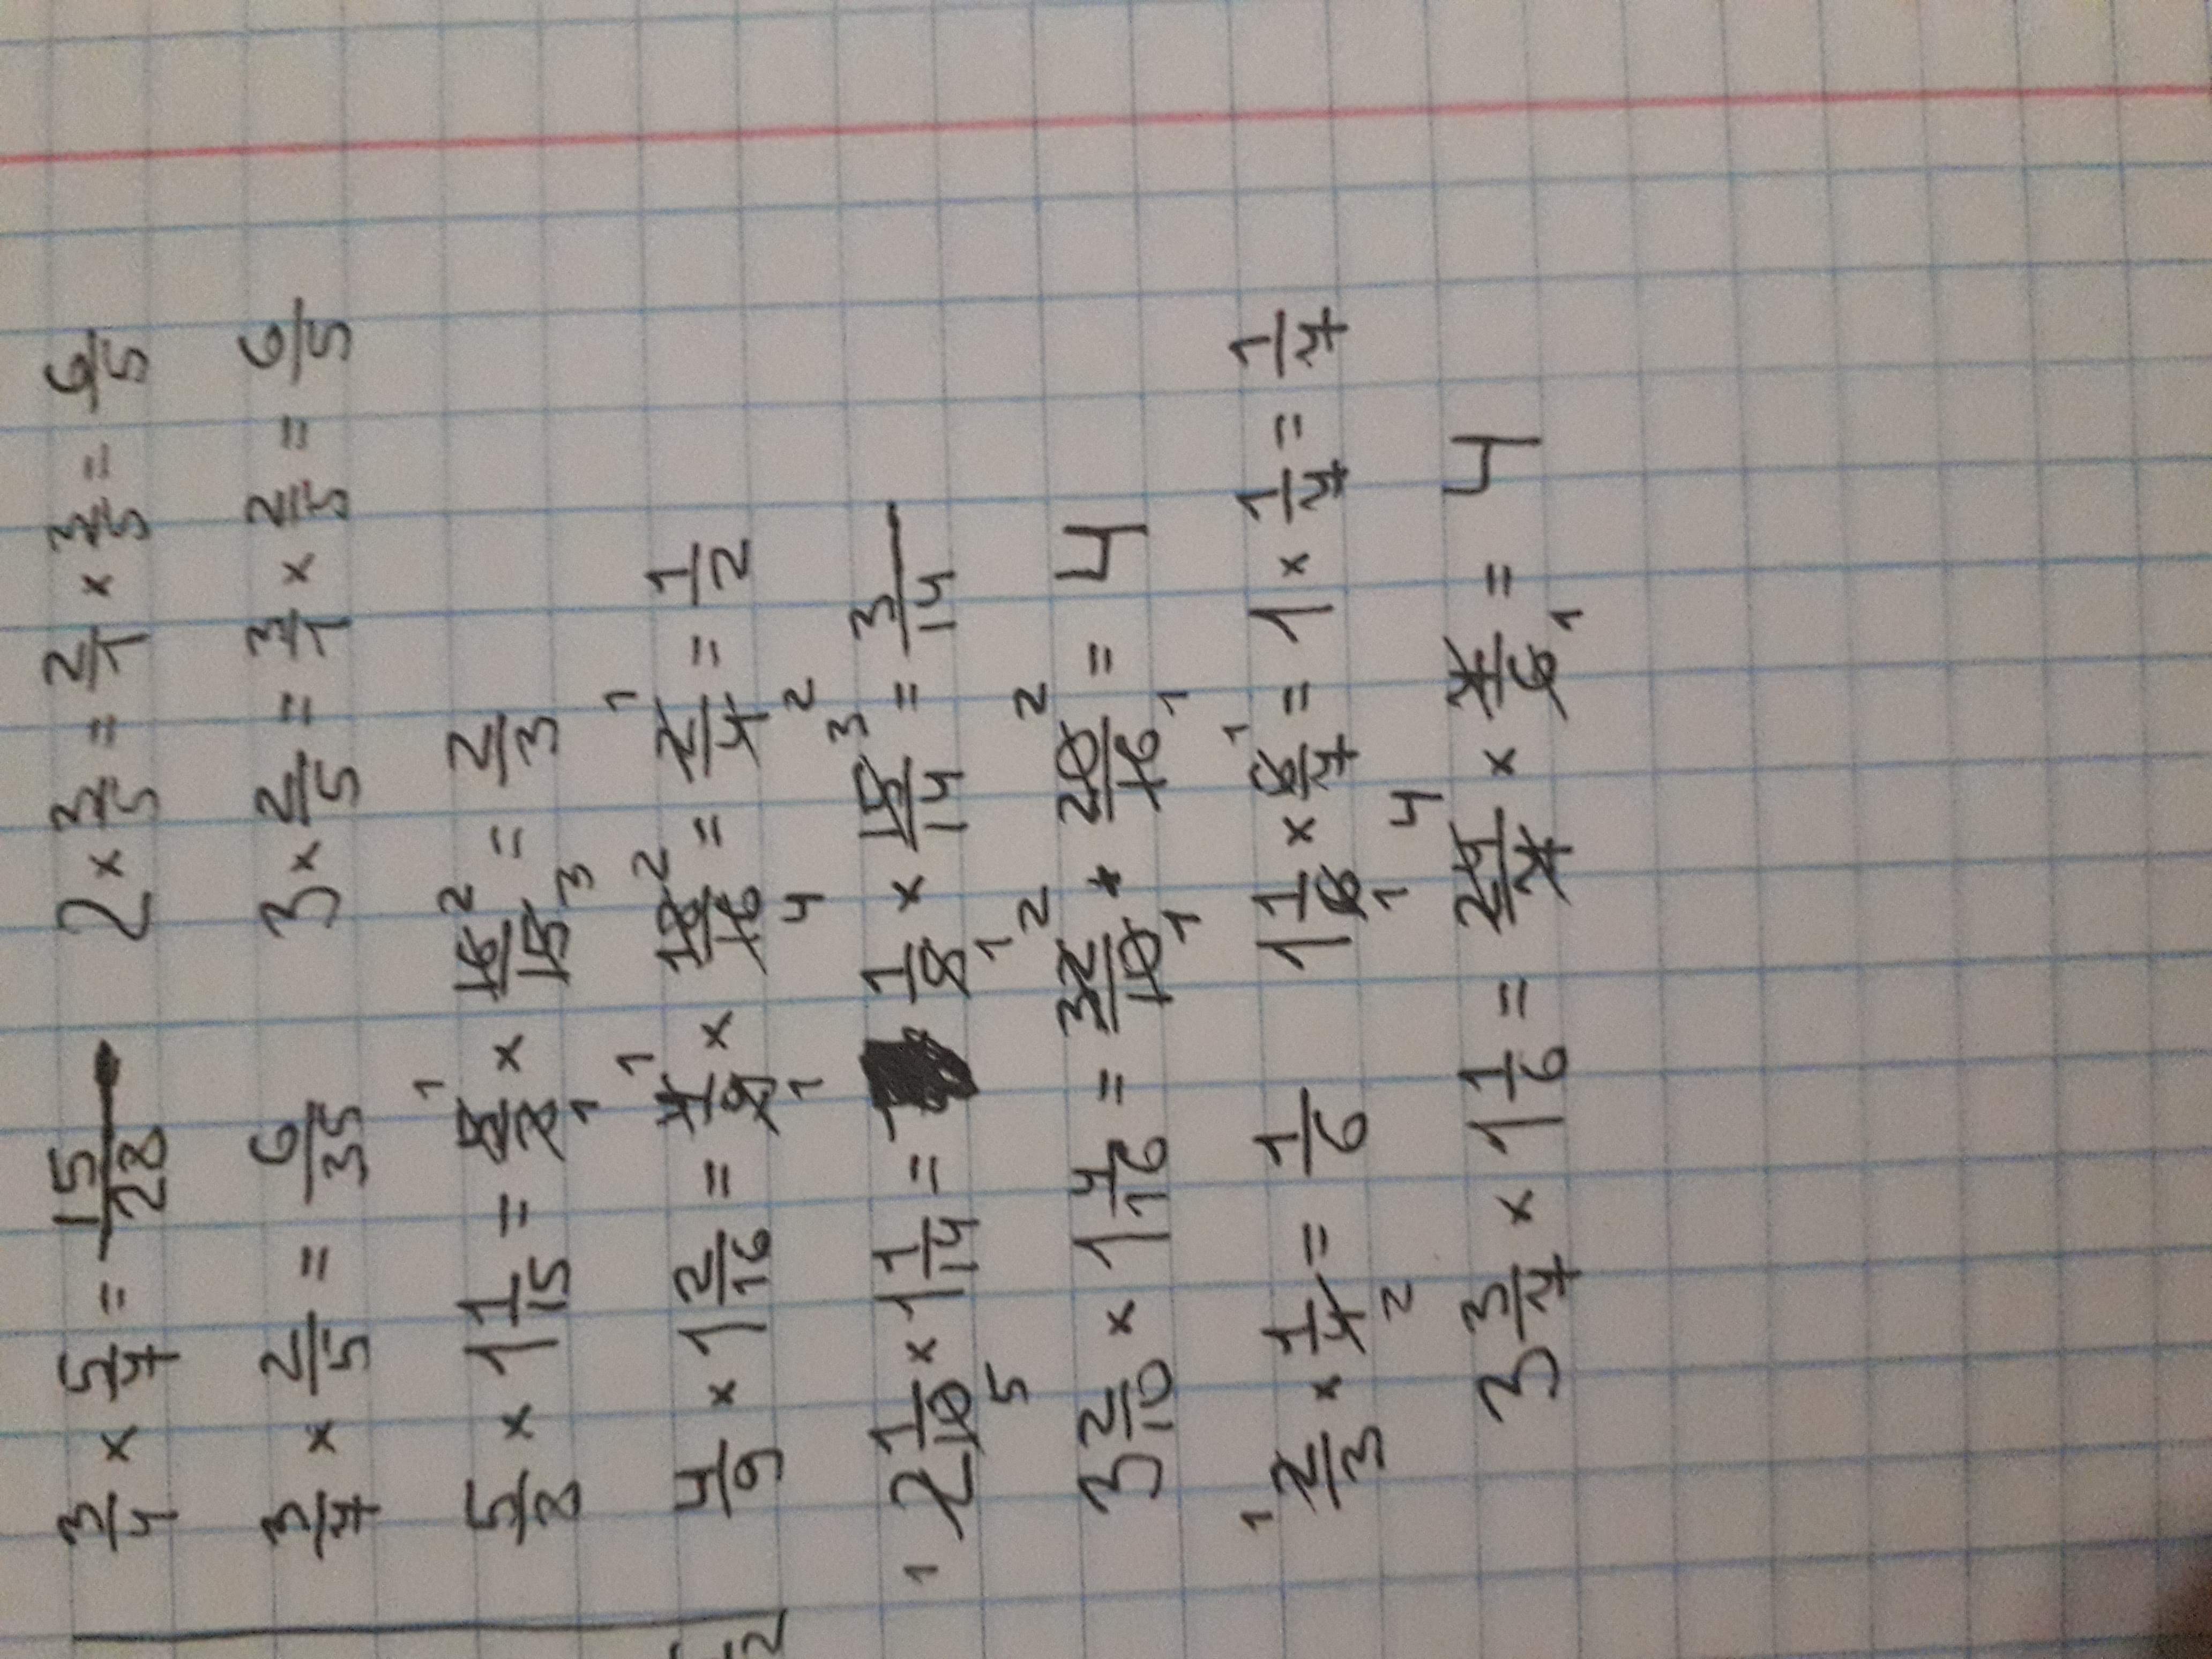 3/4 × 5/7 = 15/28 2 × 3/5 = 2/1 × 3/5 = 6/5
3/7 × 2/5 = 6/35 3 × 2/5 = 3/1 × 2/5 = 6/5
5/8 × 1 1/15 = 5/8 × 16/15 = 2/3
4/9 × 1 2/16 = 4/9 × 18/16 = 2/4 = 1/2
2 1/10 × 1 1/14 = 1/5 × 15/14 = 3/14
3 2/10 × 1 4/16 = 32/10 × 20/16 = 4
2/3 × 1/4 = 1/6 1 1/6 × 6/7 = 1 × 1/7 = 1/7
3 3/7 × 1 1/6 = 24/7 × 7/6 = 4